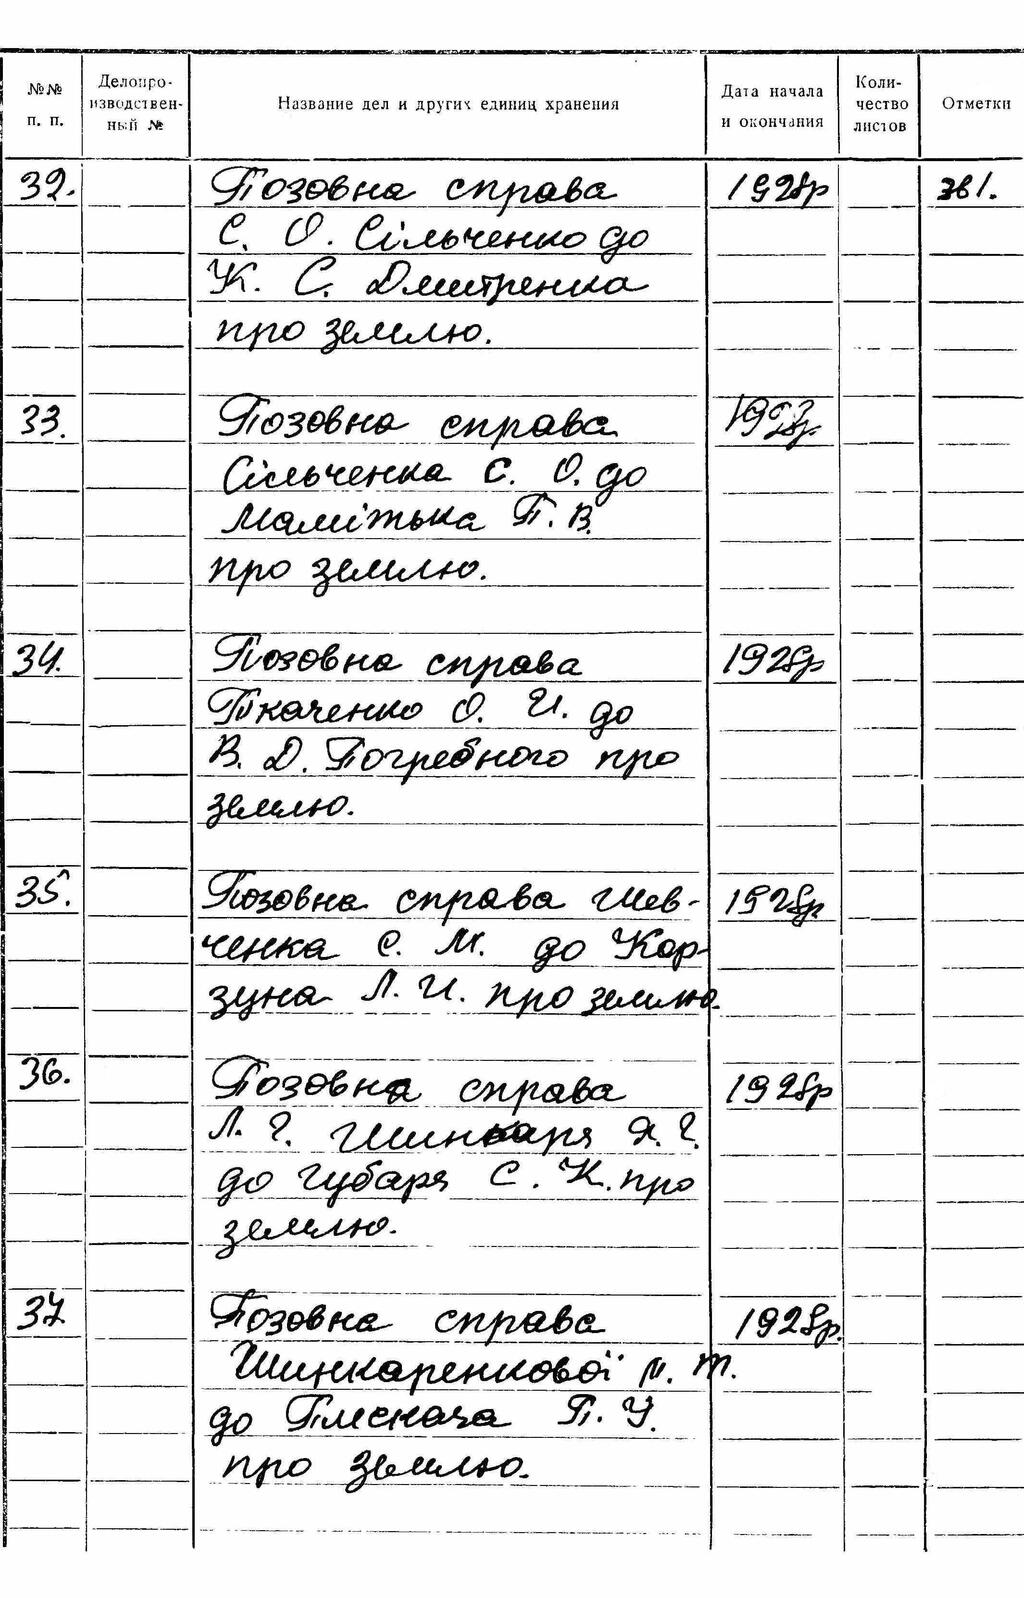 №№ п. п.
Делопро-изводствен-ный №
Название дел и других единиц хранения
Дата начала и окончания
Коли-чество листов
Отметки
32. Позовна справа 1928р
С. О. Сільченко до
К. С. Дмитренка
про землю.
33. Позовна справа
Сільченка С. О. до
Маміжька П. В.
про землю.
34. Позовна справа 1928р
Ткаченко О. И. до
В. Д. Погребного про
землю.
35. Позовна справа Шев- 1928р
ченка С. М. до Кор-
зуна Л. И. про землю.
36. Позовна справа 1928р
Л. Г. Шинкаря Я. Г.
до Губаря С. К. про
землю.
37 Позовна справа 1928р.
Шинкаренкової М. Т.
до Плескача П. У.
про землю.